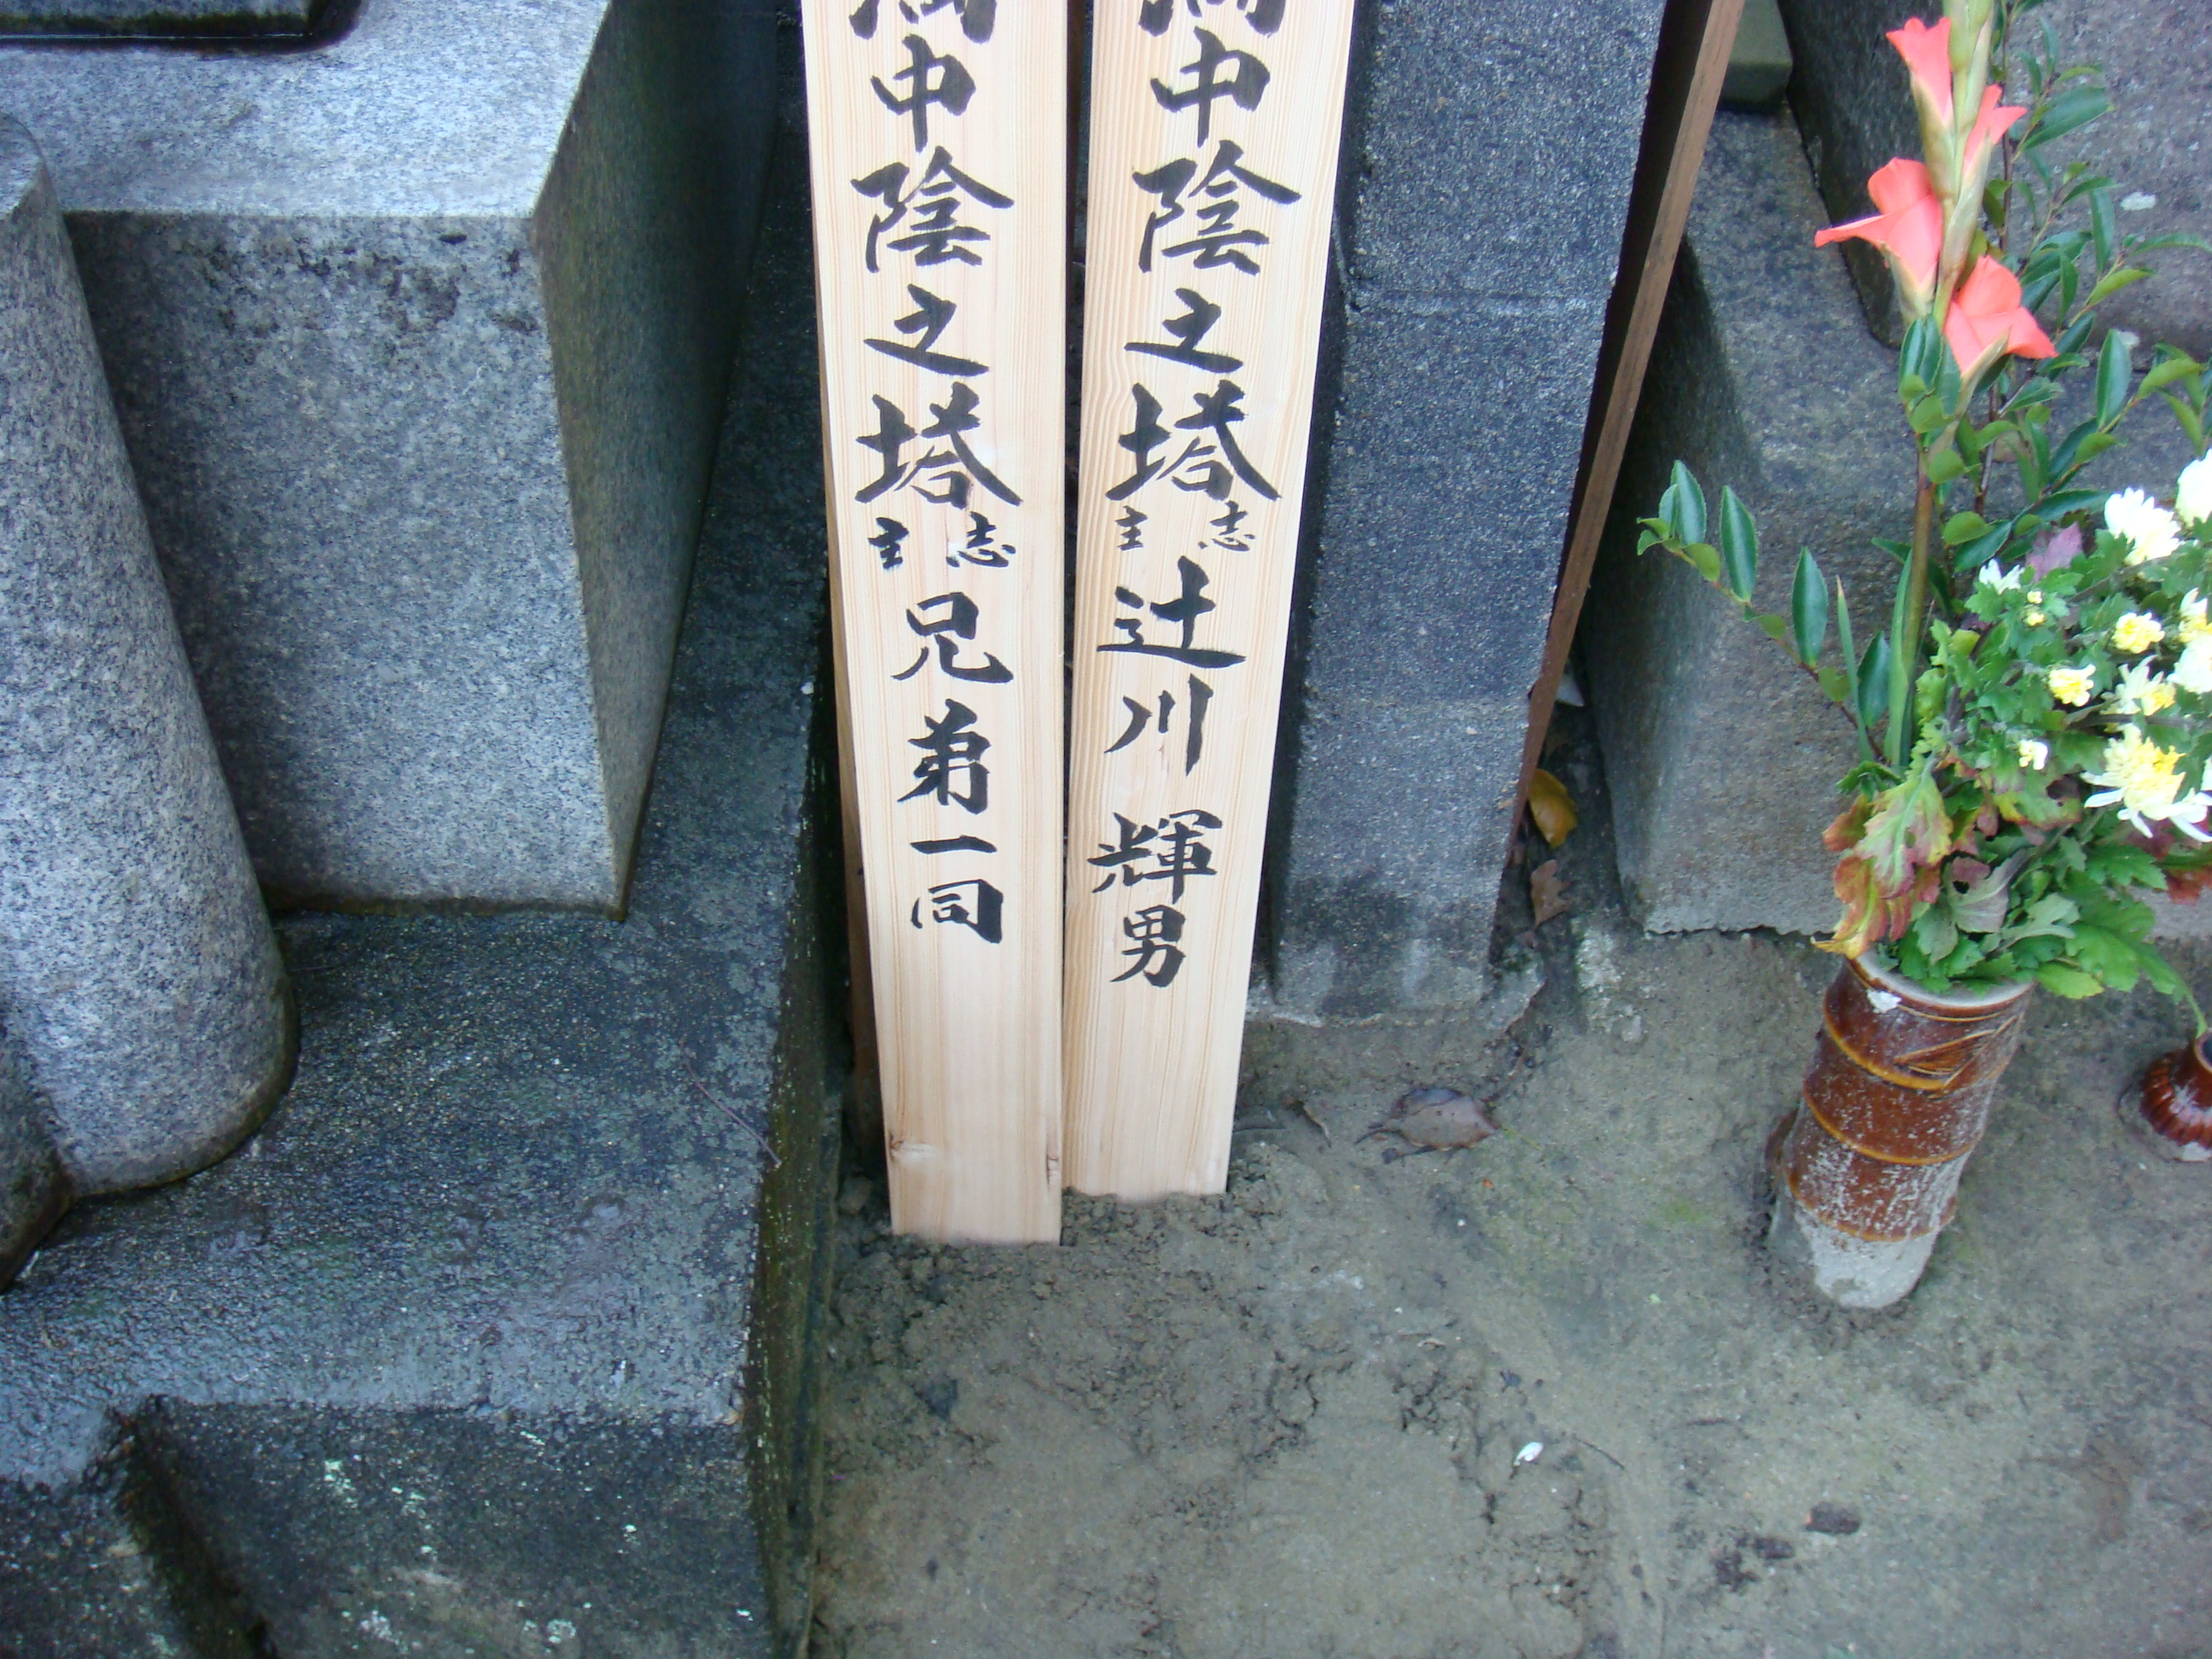 中陰之塔 志主 辻川輝男
中陰之塔 志主 兄弟一同